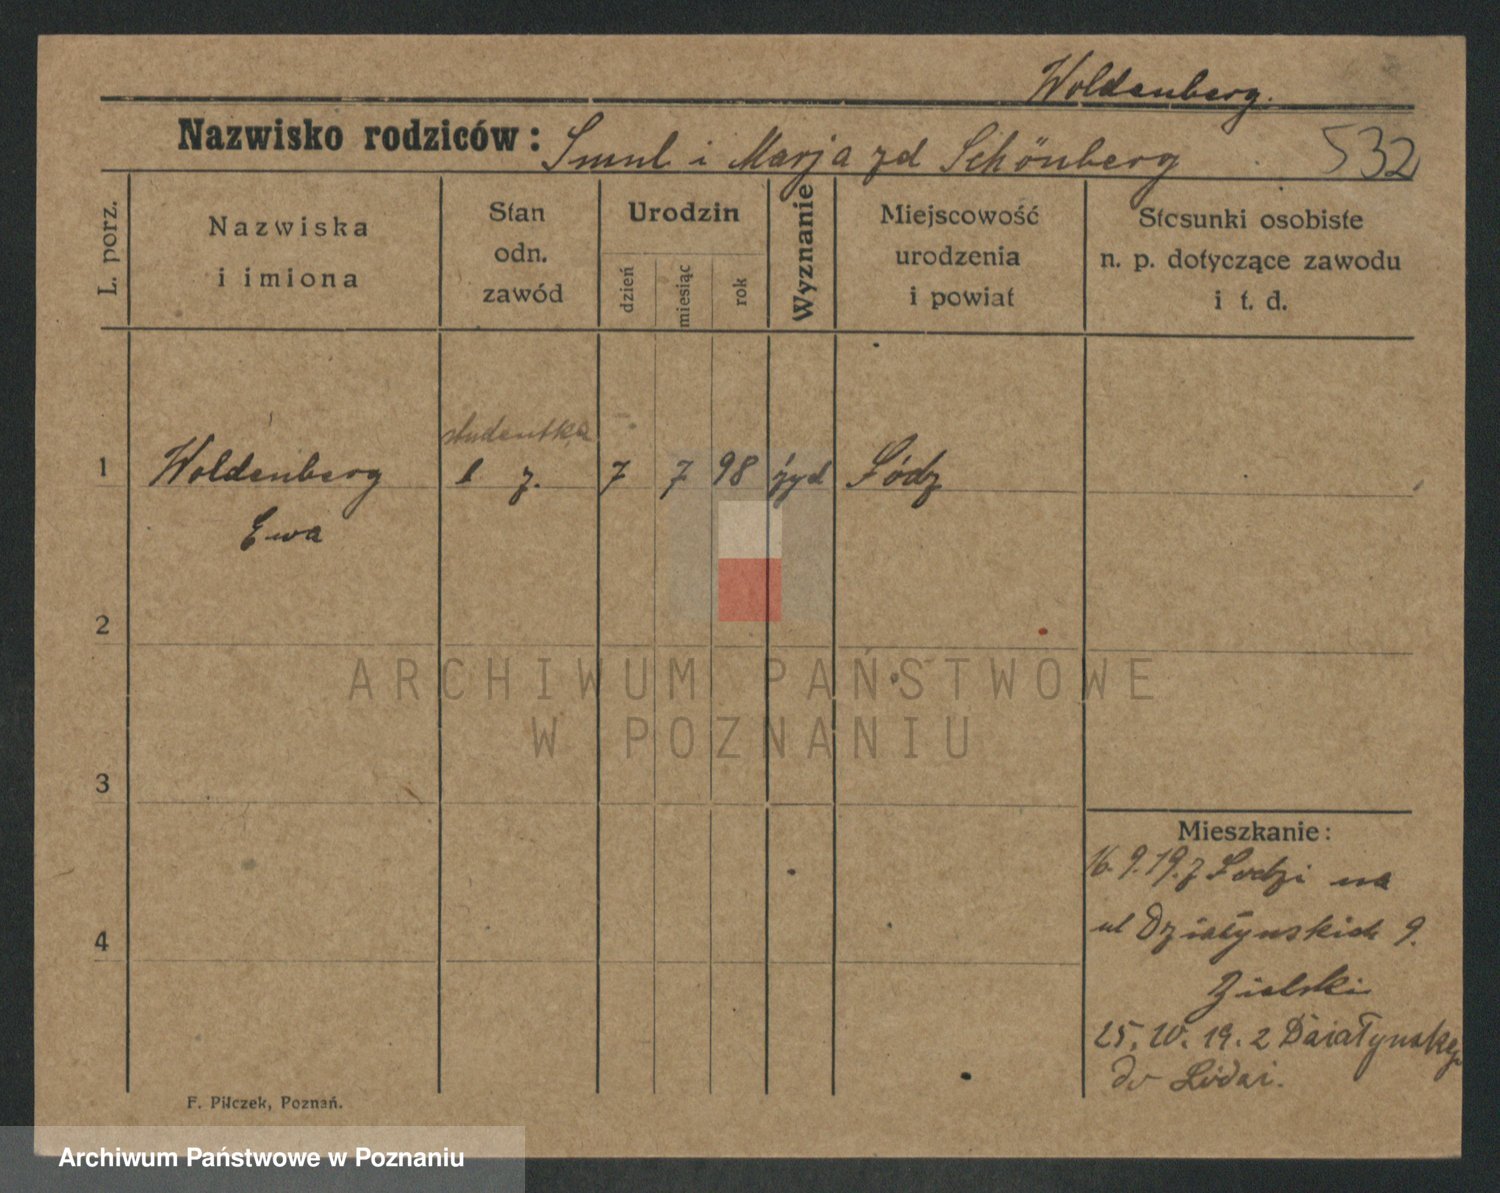 Woldenberg.
Nazwisko rodziców: Smul i Marja zd Schönberg 532
L. porz.
Nazwiska
i imiona
Stan
odn.
zawód
Urodzin
dzień
miesiąc
rok
Wyznanie
Miejscowość
urodzenia
i powiat
Stosunki osobiste
n. p. dotyczące zawodu
i t. d.
studentka
1 Woldenberg 7 7 98 żyd Łódz
Ewa
2
ARCHIWUM PAŃSTWOWE
W POZNANIU
3
4
Mieszkanie:
16.9.19. z Lodzi na
ul Działynskich 9.
Zielski
25. 10. 19. z Działynskego
do Lodzi.
F. Pilczek, Poznań.
Archiwum Państwowe w Poznaniu